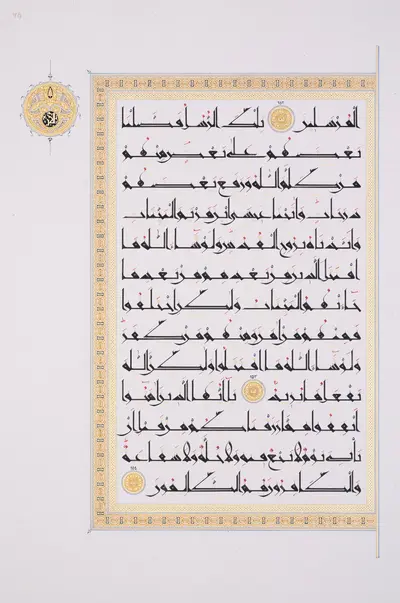 المرسلين تلك الرسل فضلنا
بعضهم على بعض منهم
من كلم الله ورفع بعضهم
درجات وآتينا عيسى ابن مريم البينات
وأيدناه بروح القدس ولو شاء الله ما
اقتتل الذين من بعدهم من بعد ما
جاءتهم البينات ولكن اختلفوا
فمنهم من آمن ومنهم من كفر
ولو شاء الله ما اقتتلوا ولكن الله
يفعل ما يريد يا أيها الذين آمنوا
أنفقوا مما رزقناكم من قبل أن
يأتي يوم لا بيع فيه ولا خلة ولا شفاعة
والكافرون هم الظالمون